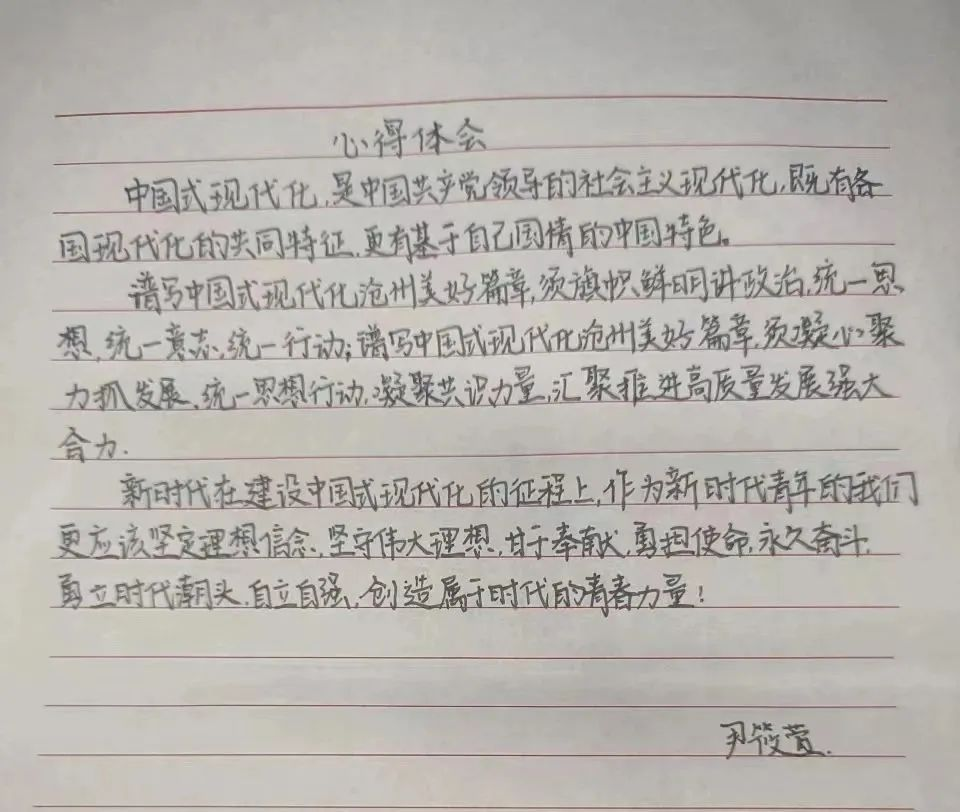 心得体会
中国式现代化,是中国共产党领导的社会主义现代化,既有各
国现代化的共同特征,更有基于自己国情的中国特色。
谱写中国式现代化沧州美好篇章,须旗帜鲜明讲政治,统一思
想,统一意志,统一行动;谱写中国式现代化沧州美好篇章,须凝心聚
力抓发展、统一思想行动,凝聚共识力量,汇聚推进高质量发展强大
合力.
新时代在建设中国式现代化的征程上,作为新时代青年的我们
更应该坚定理想信念、坚守伟大理想,甘于奉献,勇担使命,永久奋斗,
勇立时代潮头,自立自强,创造属于时代的青春力量!
尹筱萱.